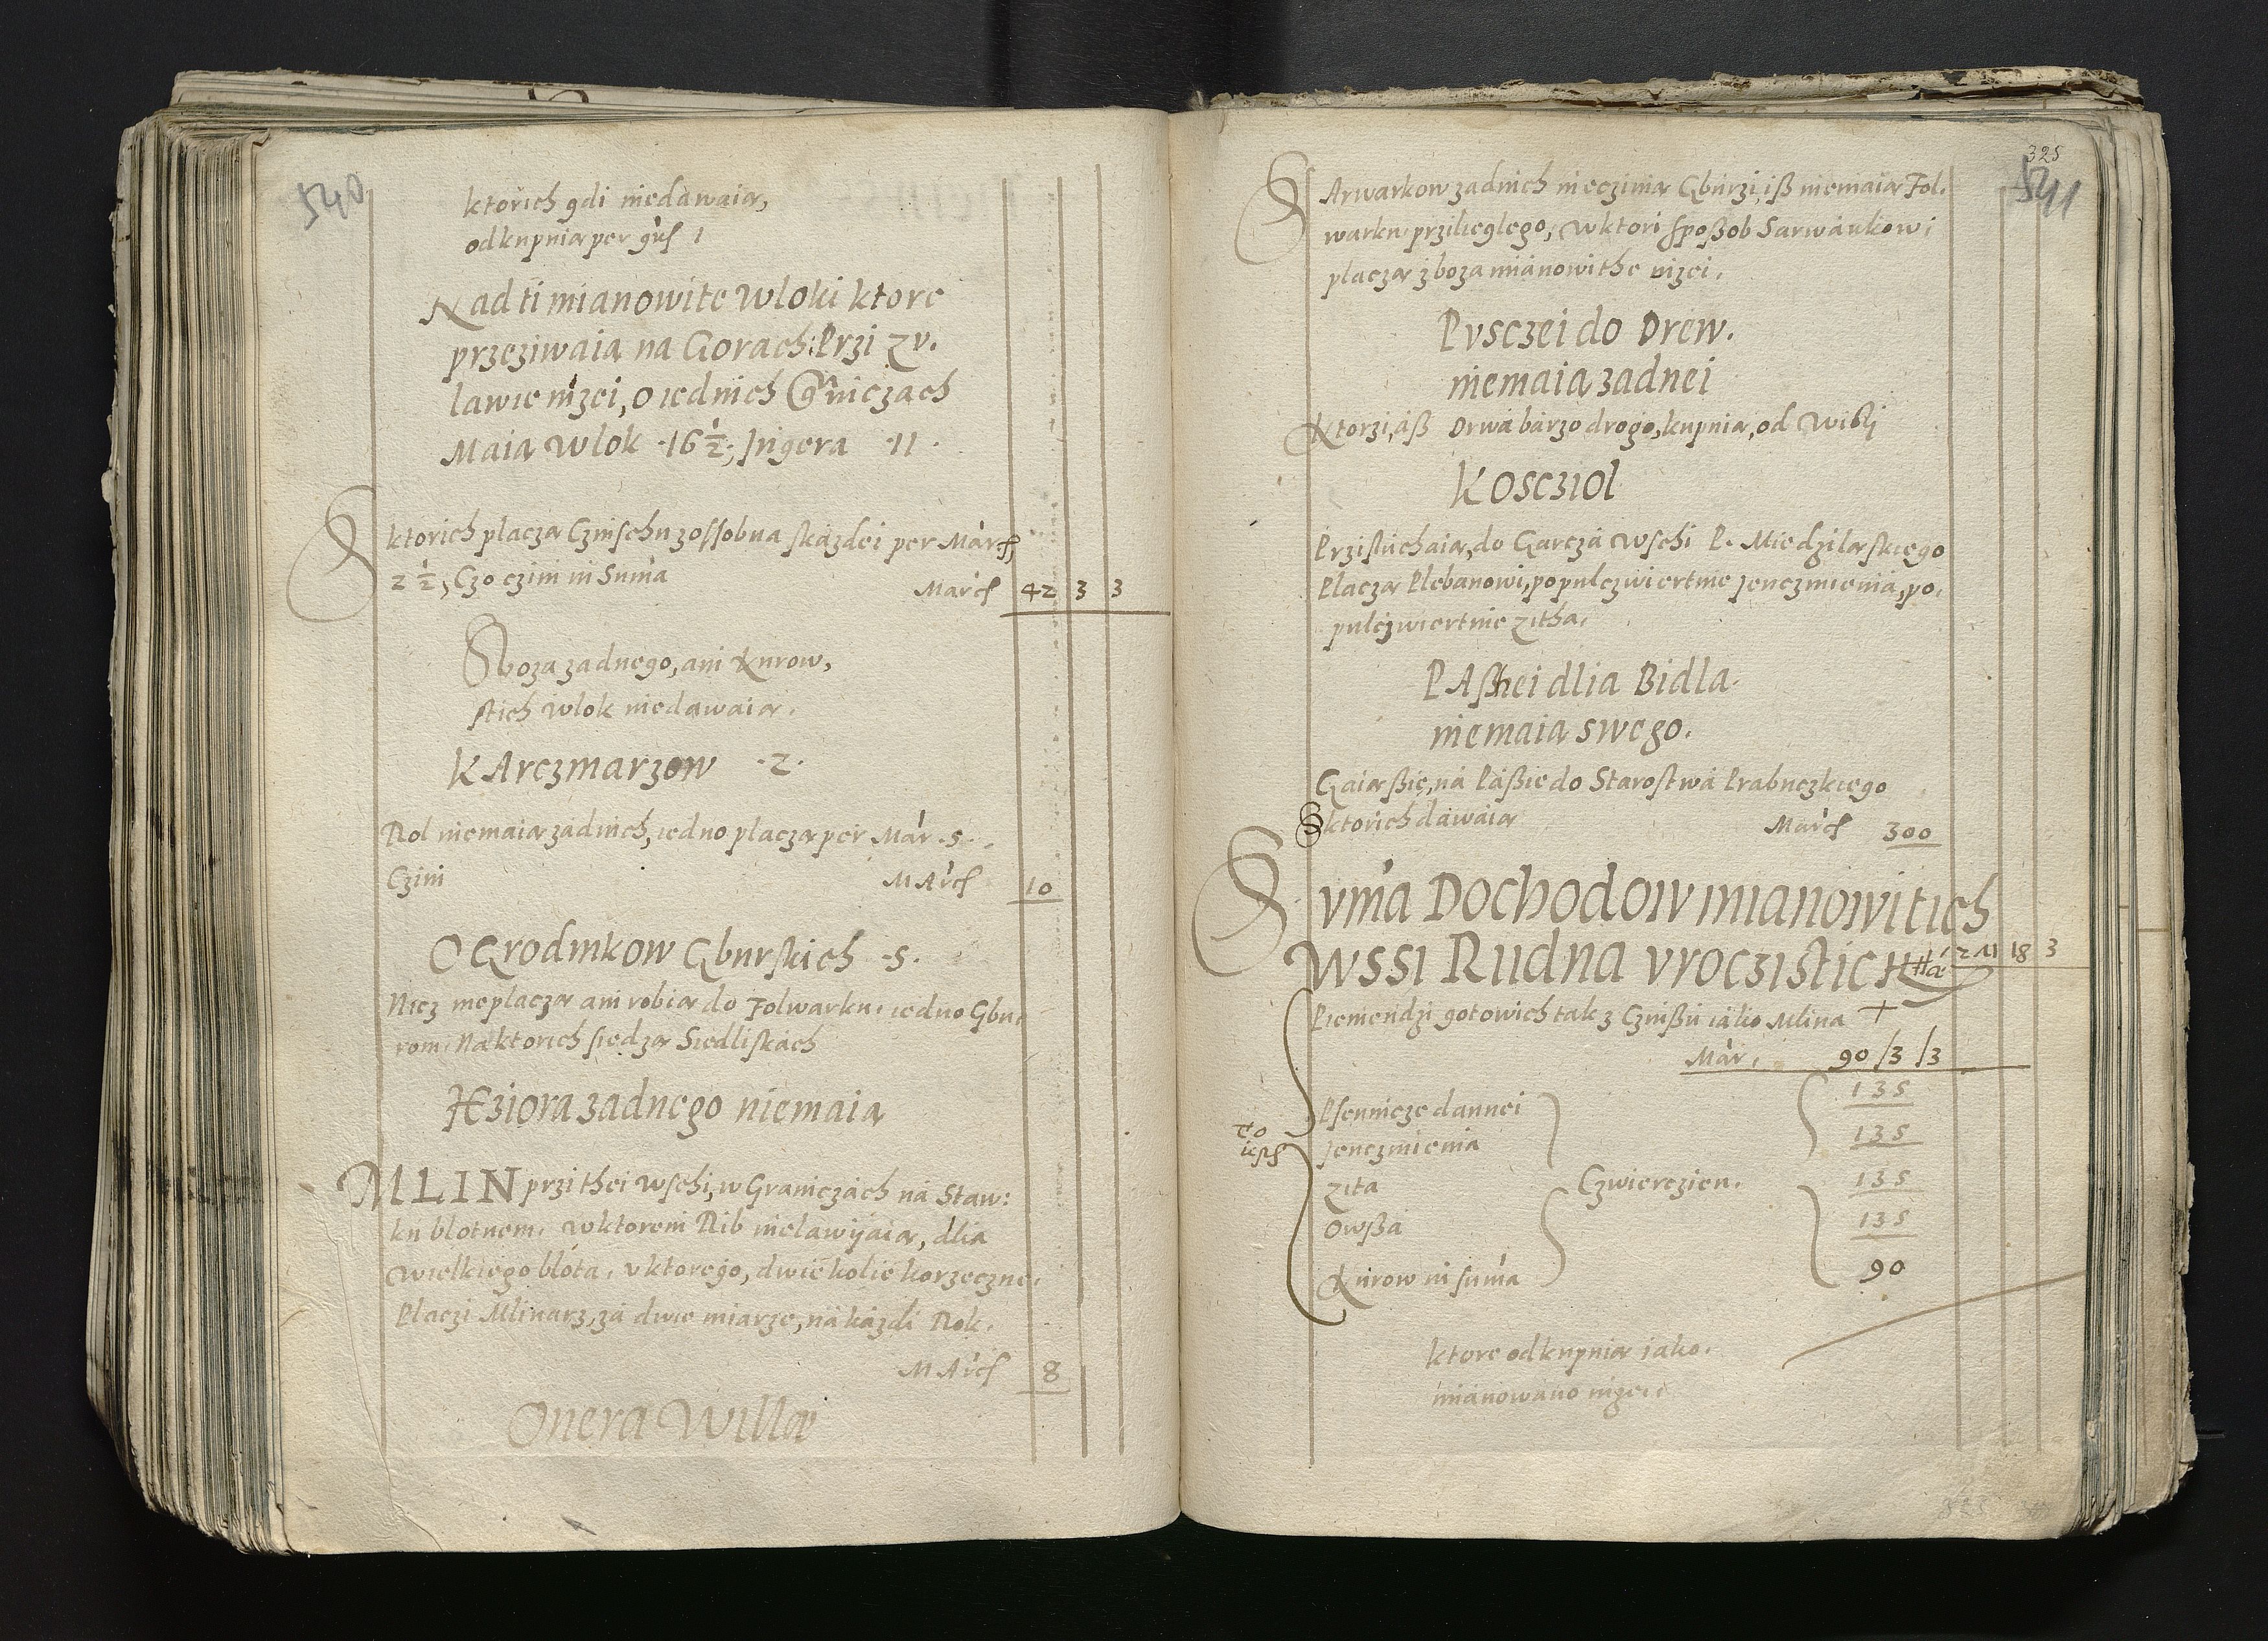 540
ktorich gdi niedawaią,
odkupuią per gůs 1
Nad ti mianowite Wloki ktore
przeziwaia na Gorach: Przi Zu.
lawie nizei, o iednich Graniczach
Maia Wlok ·16½; Iugera ·11·
S ktorich placzą Czinschu zossobna skazdei per March,
2½, Czo czini in Suma March 42 3 3
Sboza zadnego, ani Kurow,
stich wlok niedawaią.
KArczmarzow ·2·
Rol niemaią zadnich, iedno placzą per Mar ·5·
Czini MArch 10
OGrodnikow Gburskich ·5·
Nicz nieplaczą ani robią do Folwarku, iedno Gbu
rom, Naktorich siedzą Siedliskach
IEziora zadnego niemaią
MLIN przi thei wschi, w Graniczach na Staw:
ku blotnem, wktorem Rib nielawijaią, dlia
wielkiego blota, vktorego, dwie kolie korzeczne,
Placzi Mlinarz, za dwie miarze, na kazdi Rok.
MArch 8
Onera Willæ
325
541
SArwarkow zadnich nieczinią Gburzi, iß niemaią Fol.
warku przilieglego, wktori sposßob Sarwarkowi
placzą zboza mianowithe nizei.
Pusczei do Drew.
niemaią zadnei
Ktorzi, aß Drwa barzo drogo, kupuią, od Wisli
Kosczıol
Przisluchaią, do Garcza wschi P. Miedzilaskiego
Placzą Plebanowi, populczwiertnie Jenczmienia, po,
pulczwiertnie zitha.
PAsthei dlia Bidla.
niemaia swego.
Gaią ßię, na Paßie do Starostwa Prabuczkiego
S ktorich dawaią March 300
Suma Dochodow mianowitich
Wssi Rudna vroczistich 18 3
Pieniendzi gotowich tak z Czinßu iako Mlina +
Mar. 90 /3 /3
to
iest
Psennicze dannei 135
Jenczmienia 135
zita Czwierczien. 135
Owßa 135
Kurow in suma 90
ktore odkupuią iako.
mianowano nizei